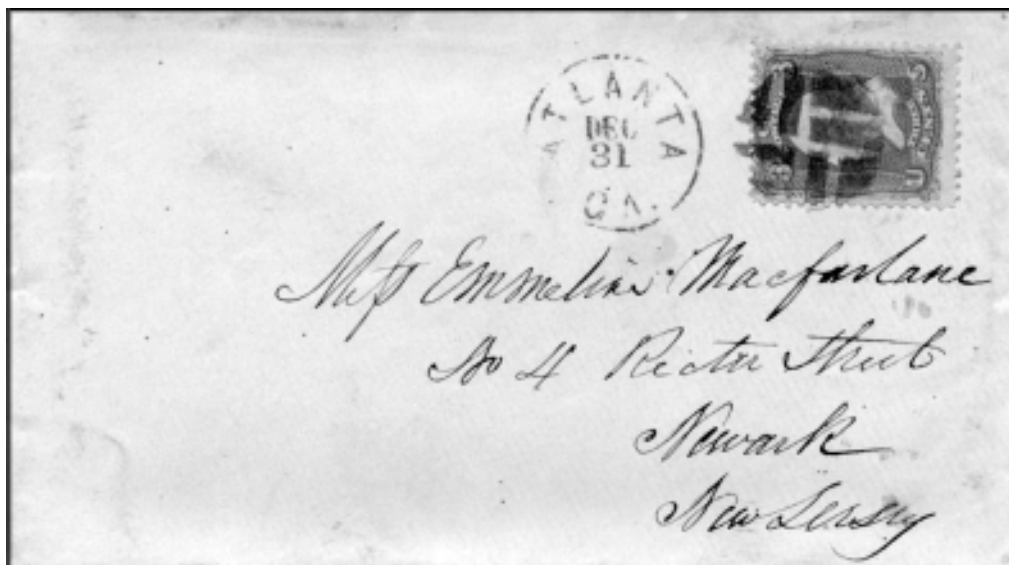 ATLANTA
DEC
31
GA.
3 3
U
Miss Emmeline Macfarlane
No 4 Rector Street
Newark
New Jersey